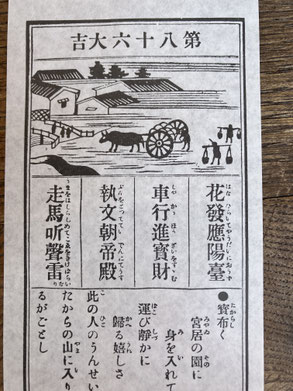 第八十六大吉
花發應陽臺
車行進寶財
執文朝帝殿
走馬听聲雷
●寳布く
宮居の園に
身を入れて
運び靜かに
歸る嬉しさ
此の人のうんせい
たからの山に入り
るがごとし